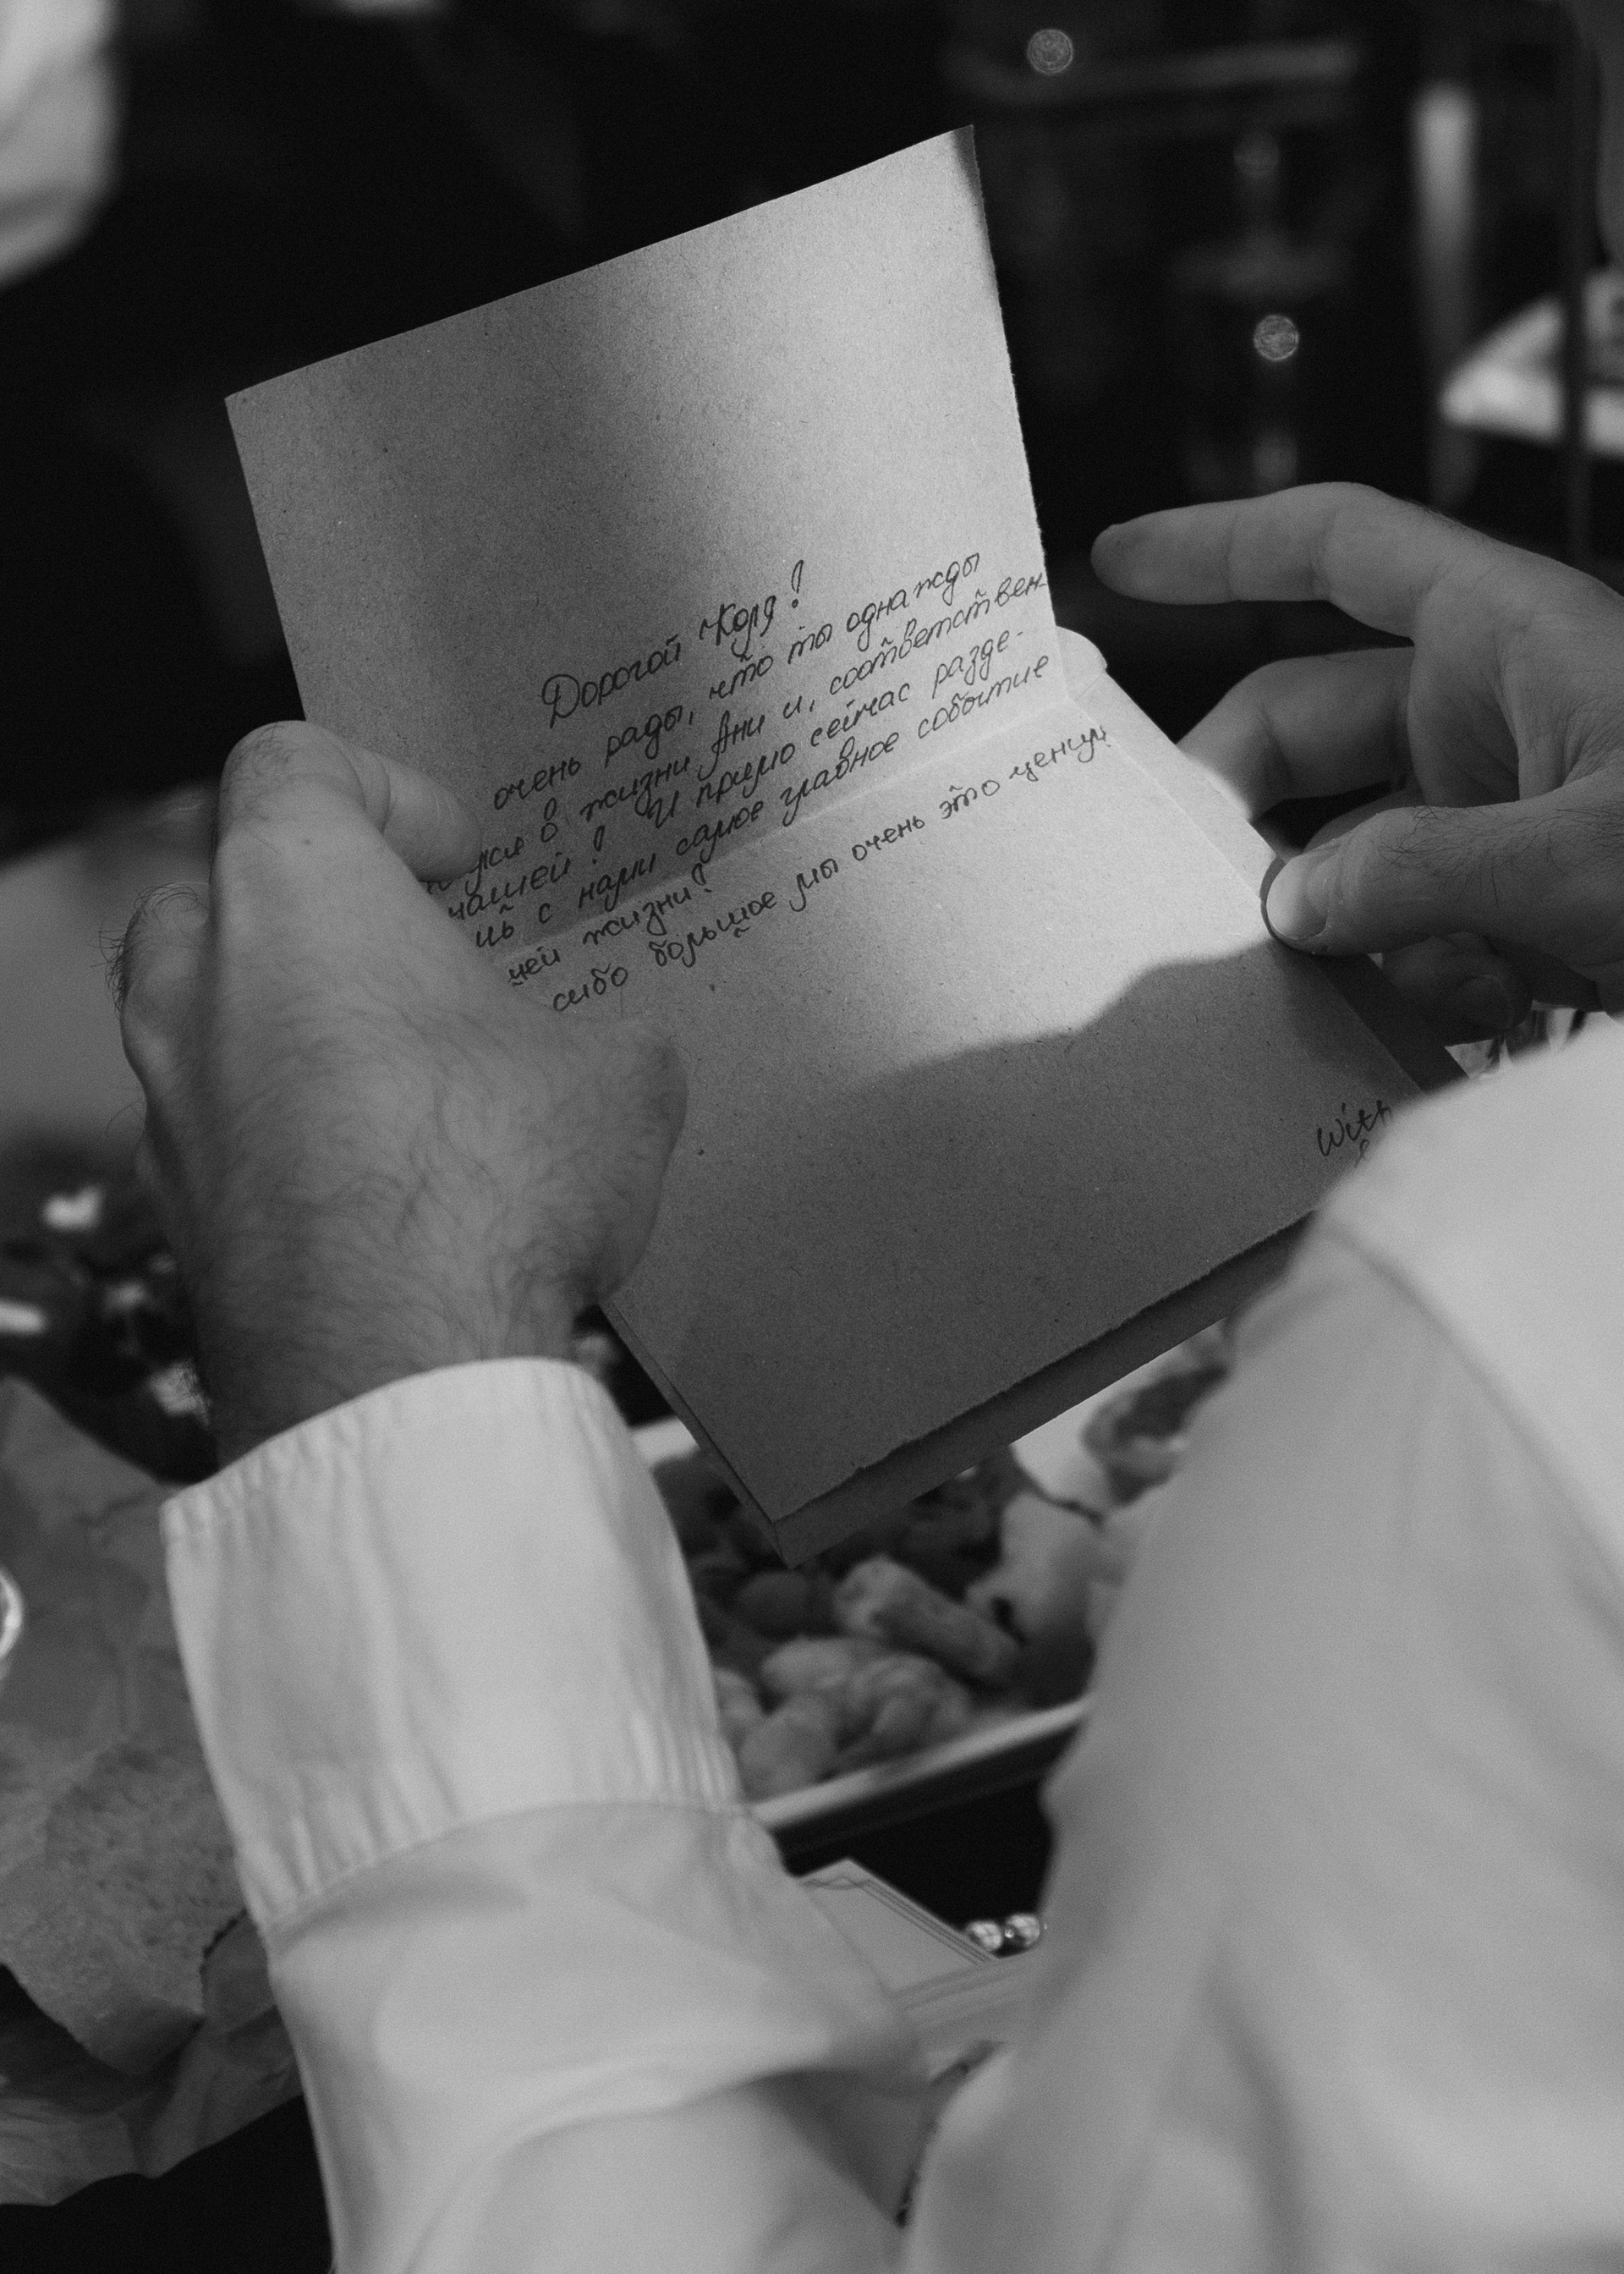 Дорогой Коля!
очень рады, что ты однажды
в жизни Ани и, соответствен-
нашей! И прямо сейчас разде-
с нами самое главное событие
жизни!
большое мы очень это ценим
With